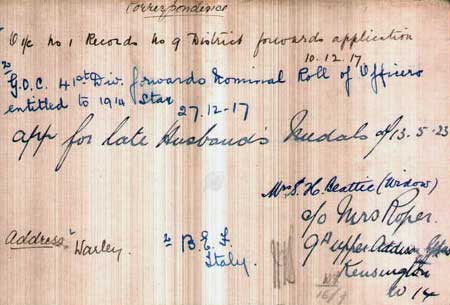 Correspondence
O i/c No 1 Records No 9 District forwards application
10.12.17
2 G.O.C. 41st Div. forwards Nominal Roll of Officers
entitled to 1914 Star
27-12-17
app for late Husband's Medals d/13-5-23
Mrs S. H. Beattie (Widow)
c/o Mrs Roper.
9A upper Addison
Kensington
W 14
Address Warley.
2 B.E.F
Italy.